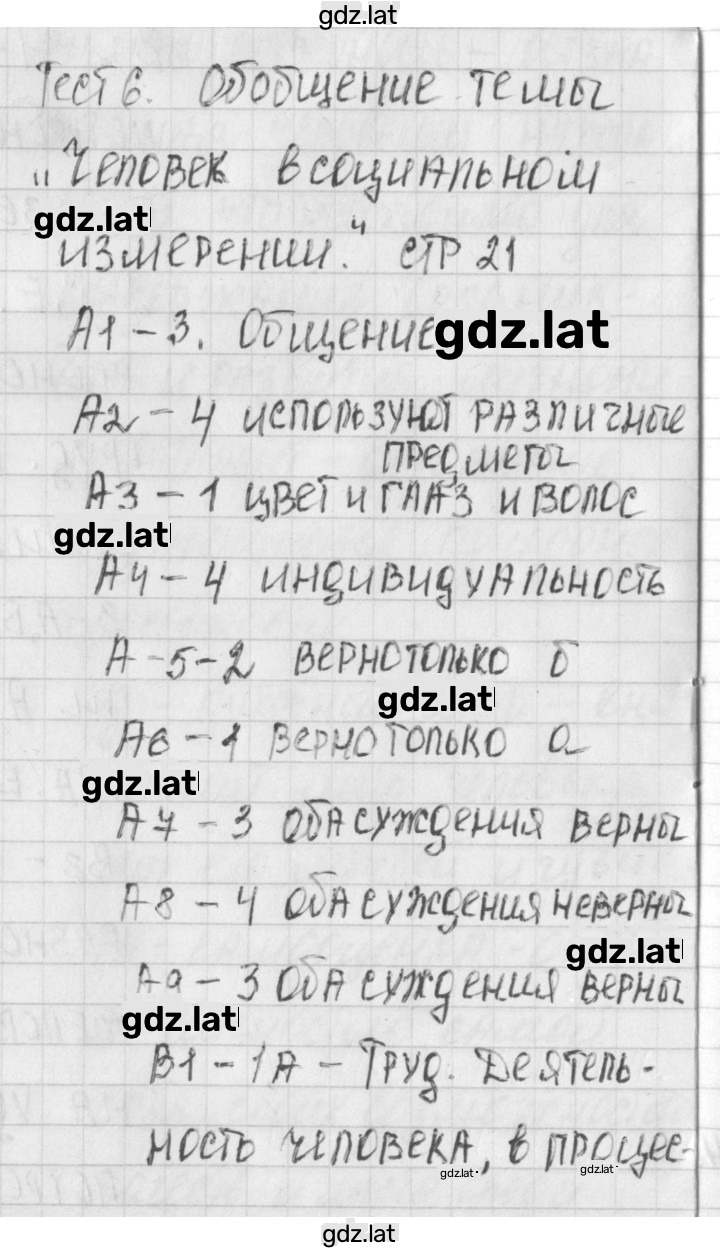 gdz.lat
Тест 6. Обобщение темы
"Человек в социальном
gdz.lat
измерении." стр 21
А1 - 3. Общение gdz.lat
А2 - 4 используют различные
предметы
А3 - 1 цвет и глаз и волос
gdz.lat
А4 - 4 индивидуальность
А-5-2 верно только б
gdz.lat
А6 - 1 верно только а
gdz.lat
А7 - 3 оба суждения верны
А8 - 4 оба суждения неверны
gdz.lat
А9 - 3 оба суждения верны
gdz.lat
В1 - 1А - Труд. Деятель-
ность человека, в процес-
gdz.lat gdz.lat
gdz.lat